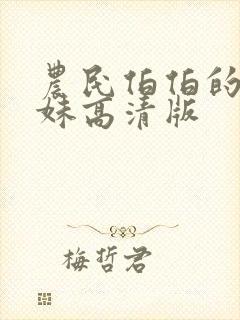 農民伯伯的
妹高清版
梅哲君